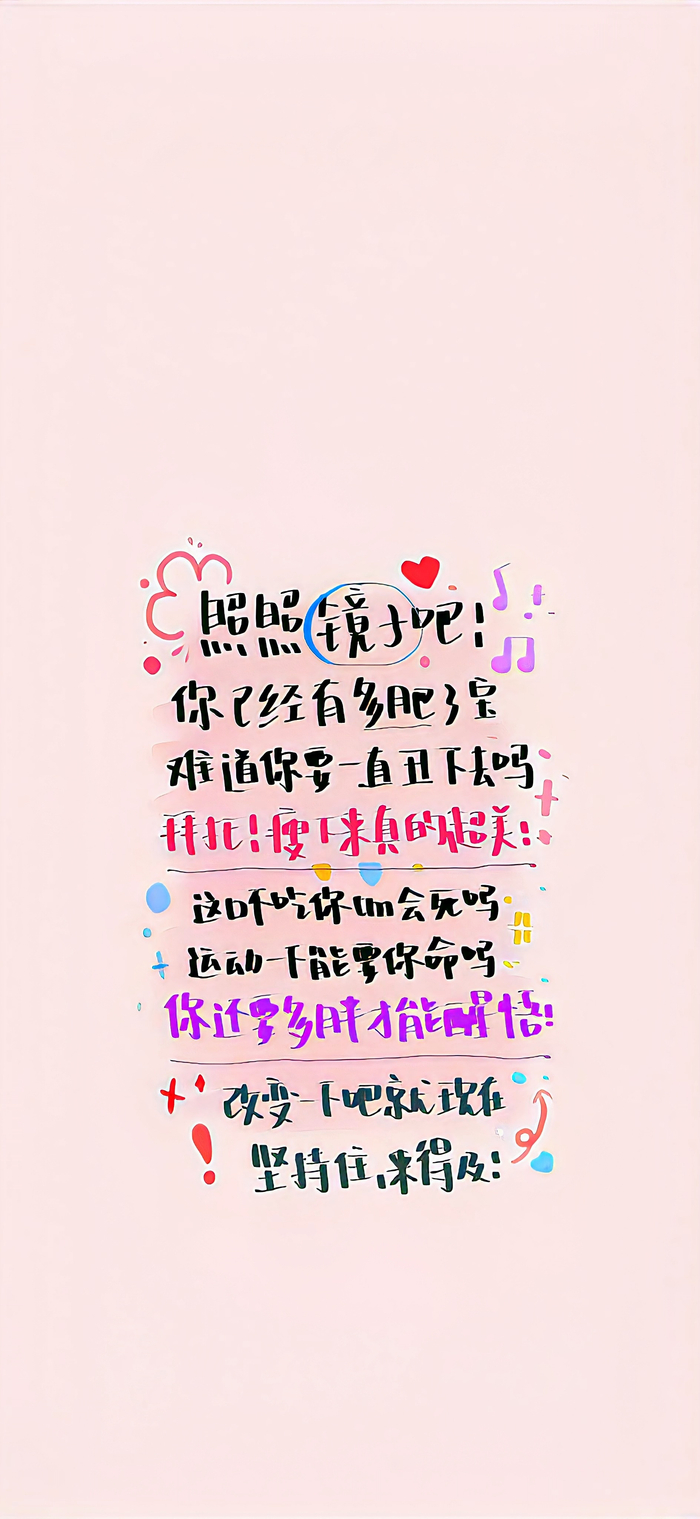 照照镜子吧!
你已经有多肥了宝
难道你要一直丑下去吗
拜托!瘦下来真的超美!
这口不吃你会死吗
运动一下能要你命吗
你还要多胖才能醒悟!
改变一下吧就现在
坚持住,来得及!